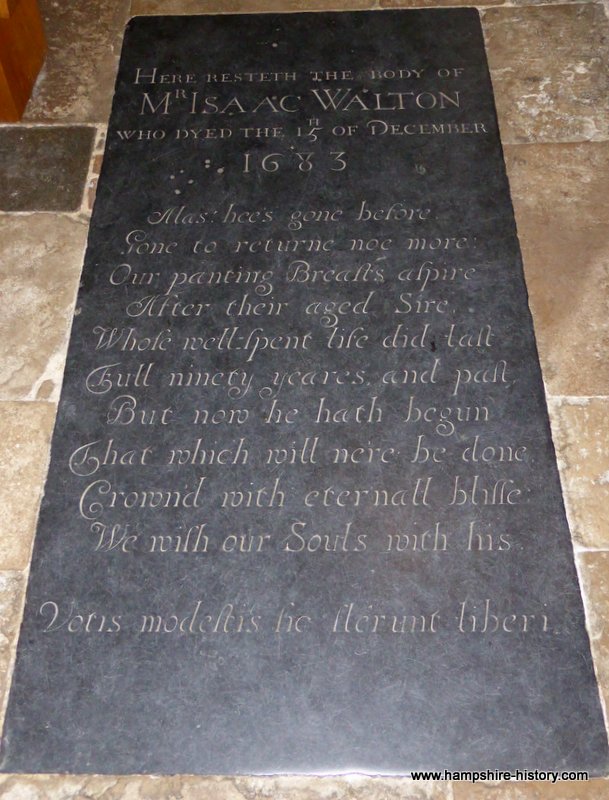 HERE RESTETH THE BODY OF
Mʀ ISAAC WALTON
WHO DYED THE 15ᴛʜ OF DECEMBER
1683
Alas: hee's gone before.
Gone to returne noe more:
Our panting Breasts aſpire
After their aged Sire.
Whoſe well-ſpent life did laſt
Full ninety yeares, and paſt,
But now he hath begun
That which will nere be done
Crown'd with eternall bliſſe:
We wiſh our Souls with his.
Votis modeſtis ſic flerunt liberi
www.hampshire-history.com